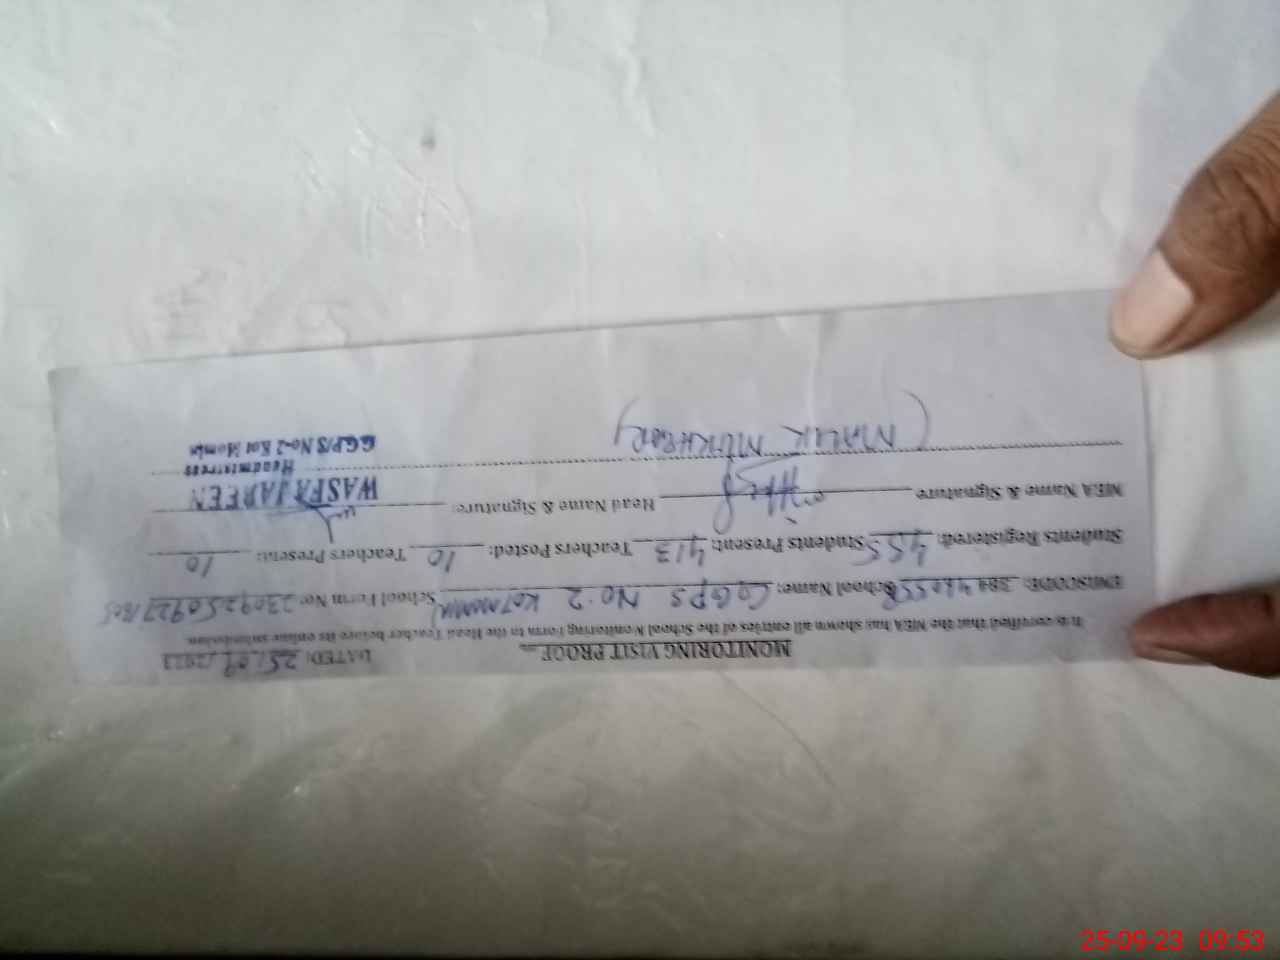 MONITORING VISIT PROOF
DATED: 25/09/2023
It is certified that the MEA has shown all entries of the School Monitoring Form to the Head Teacher before its online submission
EMISCODE: School Name: GGPS No 2 KOTMOMIN School Form No:
Students Registered: 455 Students Present: 413 Teachers Posted: 10 Teachers Present: 10
MEA Name & Signature Head Name & Signature:
WASFA JAREEN
Headmistress
GGP/S No-2 Kot Momin
(MALIK
25-09-23 09:53